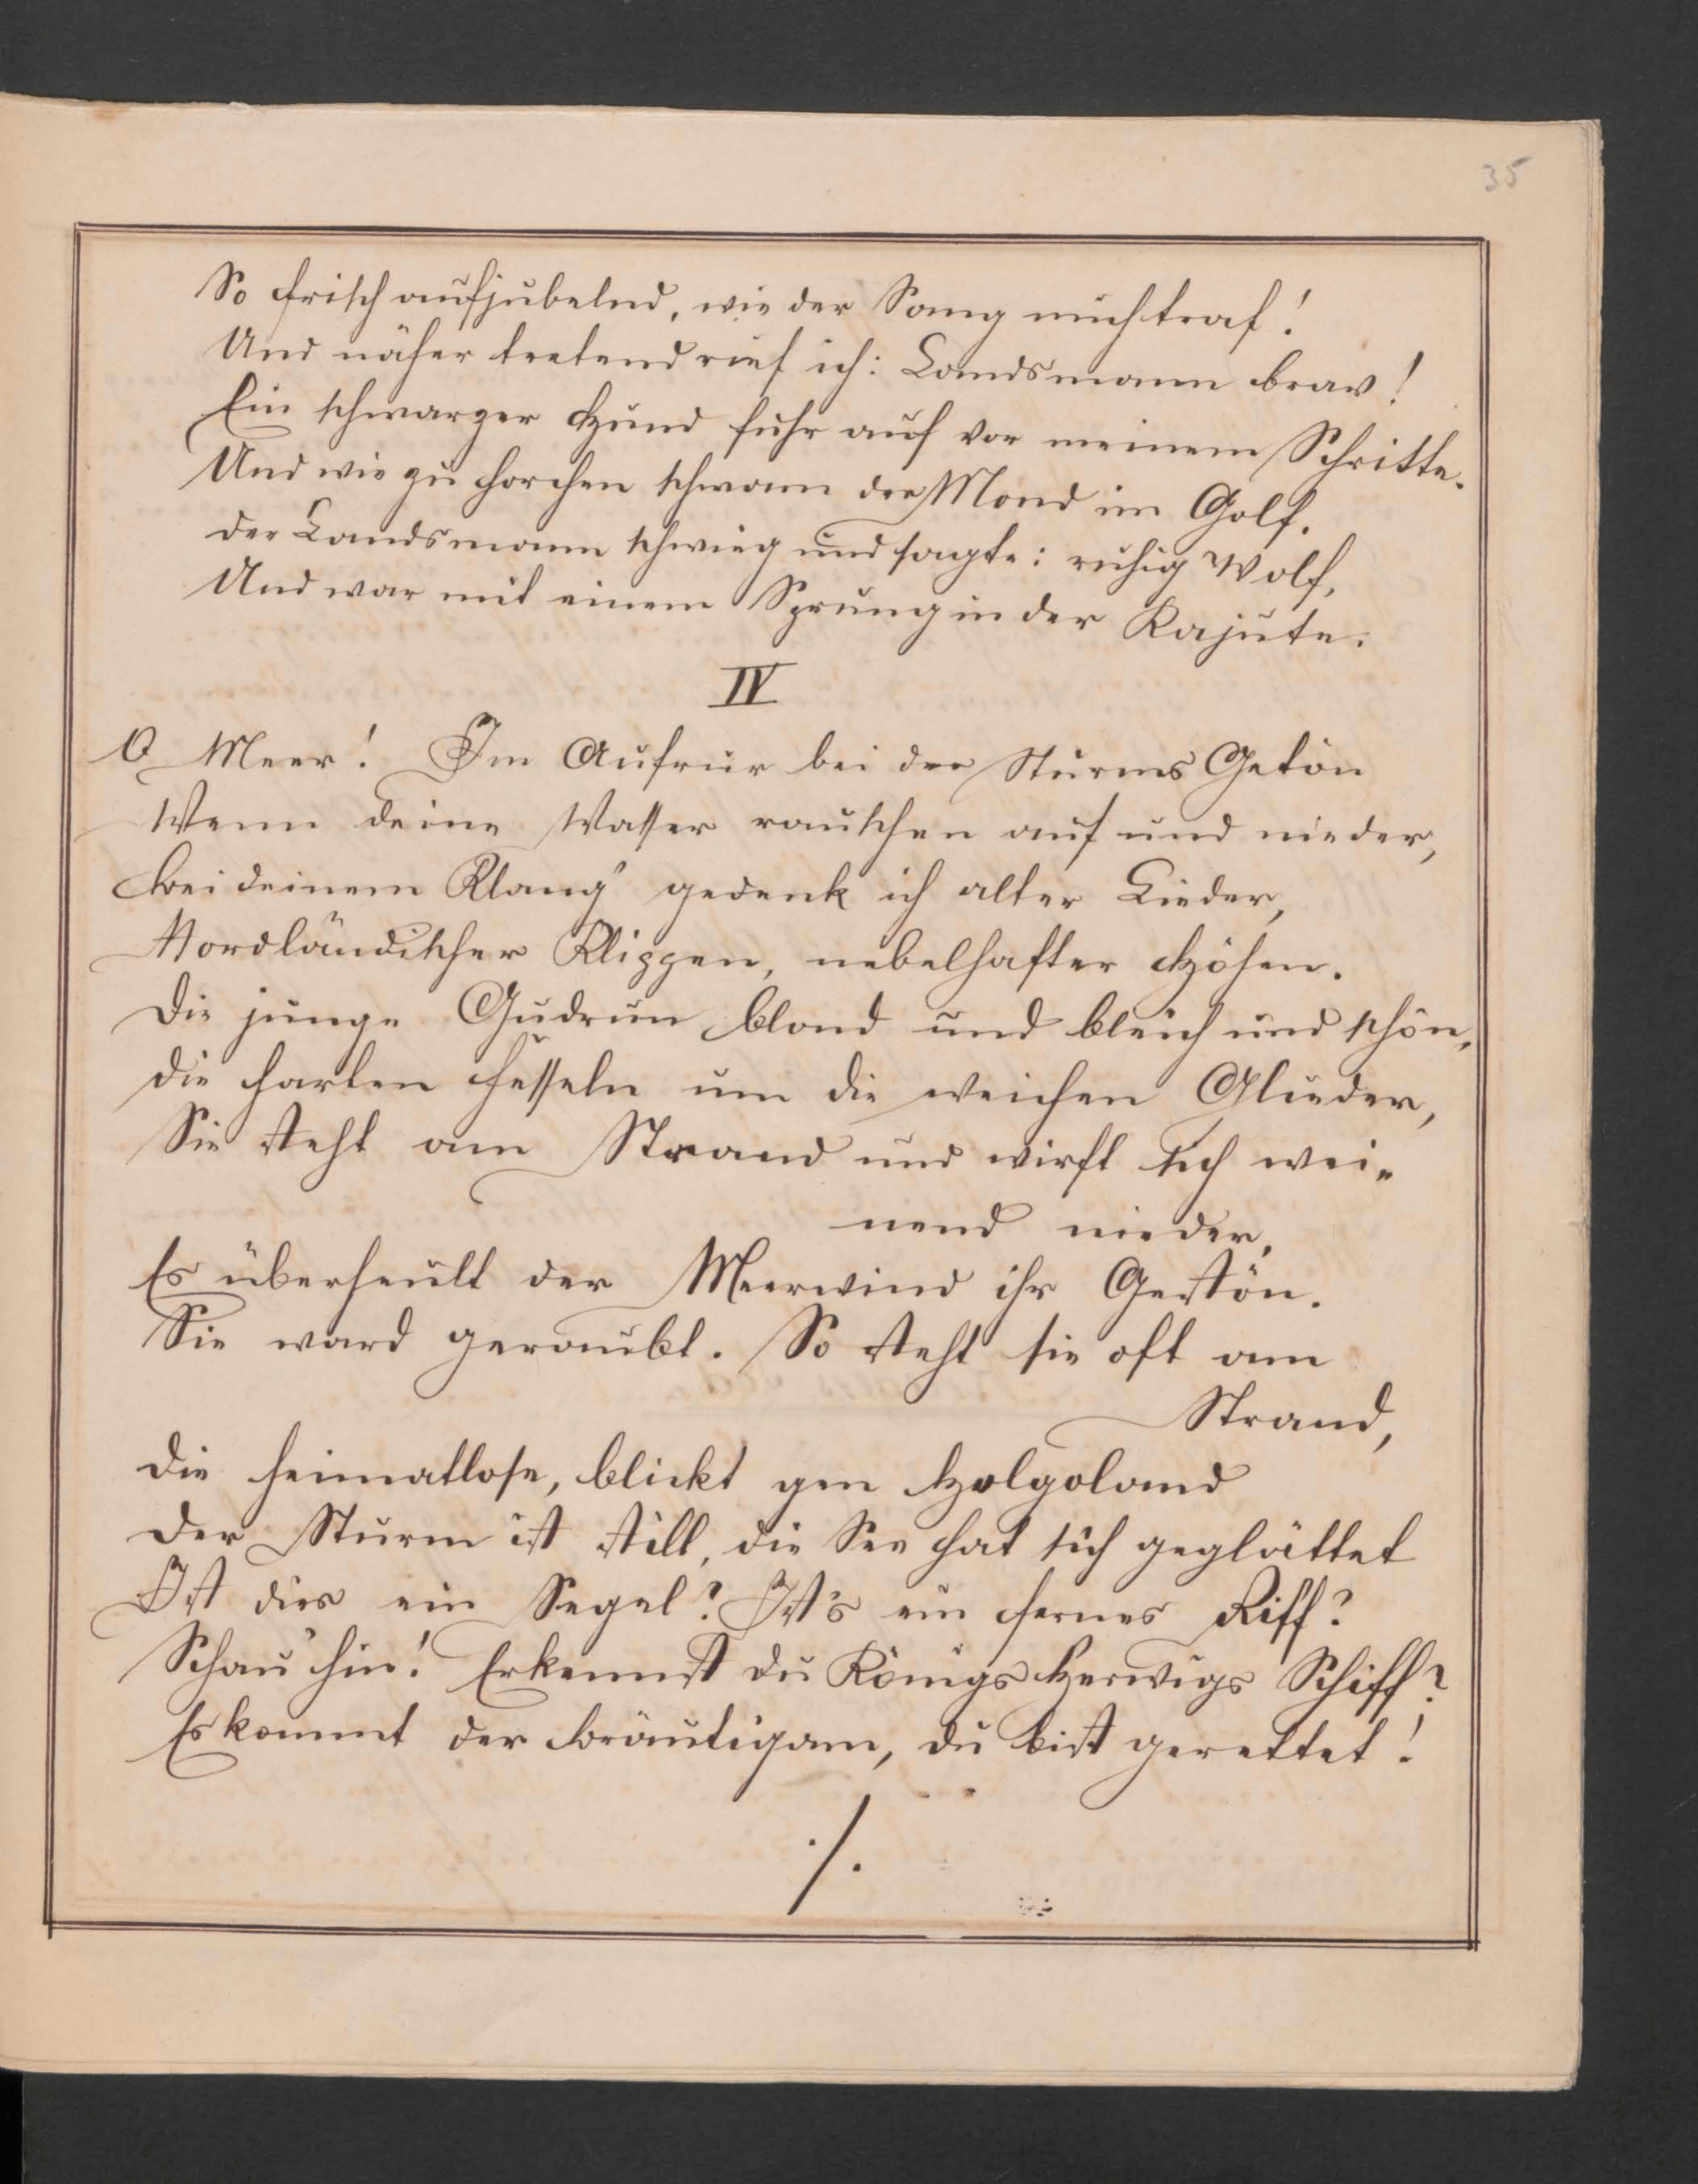 35
So frisch aufjubelnd, wie der Sang mich traf!
Und näher tretend rief ich: Landsmann brav!
Ein schwarzer Hund fuhr auf vor meinem Schritte.
Und wie zu horchen schwam der Mond im Golf.
der Landsmann schwieg und sagte: ruhig Wolf,
Und war mit einem Sprung in der Kajüte.
IV
O Meer! Im Aufrur bei der Sturms Getön
Wenn deine Wasser rauschen auf und nieder,
bei deinem Klang' gedenk ich alter Lieder,
Nordländischer Klippen, nebelhafter Höhen.
Die junge Gudrun blond und bleich und schön,
die harten Fesseln um die weichen Glieder,
Sie steht am Strand und wirft sich wei-
nend nieder,
Es überheult der Meerwind ihr Gestön.
Sie ward geraubt. So steht sie oft am
Strand,
die heimatlose, blickt gen Holgoland
der Sturm ist still, die See hat sich geglättet
Ist dies ein Segel? Ist's ein fernes Riff?
Schau' hin! Erkennst du Königs Herwigs Schiff?
Es kommt der bräutigam, du bist gerettet!
./.